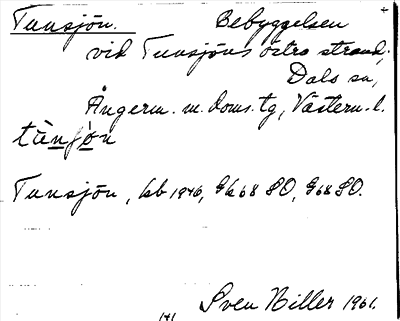 Tunsjön. Bebyggelsen
vid Tunsjöns östra strand,
Dals sn,
Ångerm. m. doms. tg, Västern. l.
tùnʃø̀n
Tunsjön, kb 1946, Gk 68 SO, G 68 SO.
Sven Hiller 1961.